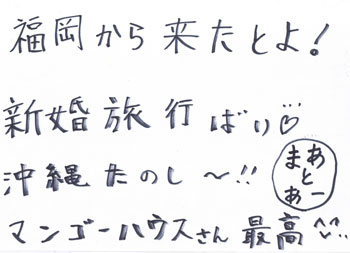 福岡から来たとよ!
新婚旅行ばい♡
沖縄たのし〜!!
マンゴーハウスさん最高^^
あーとまあ